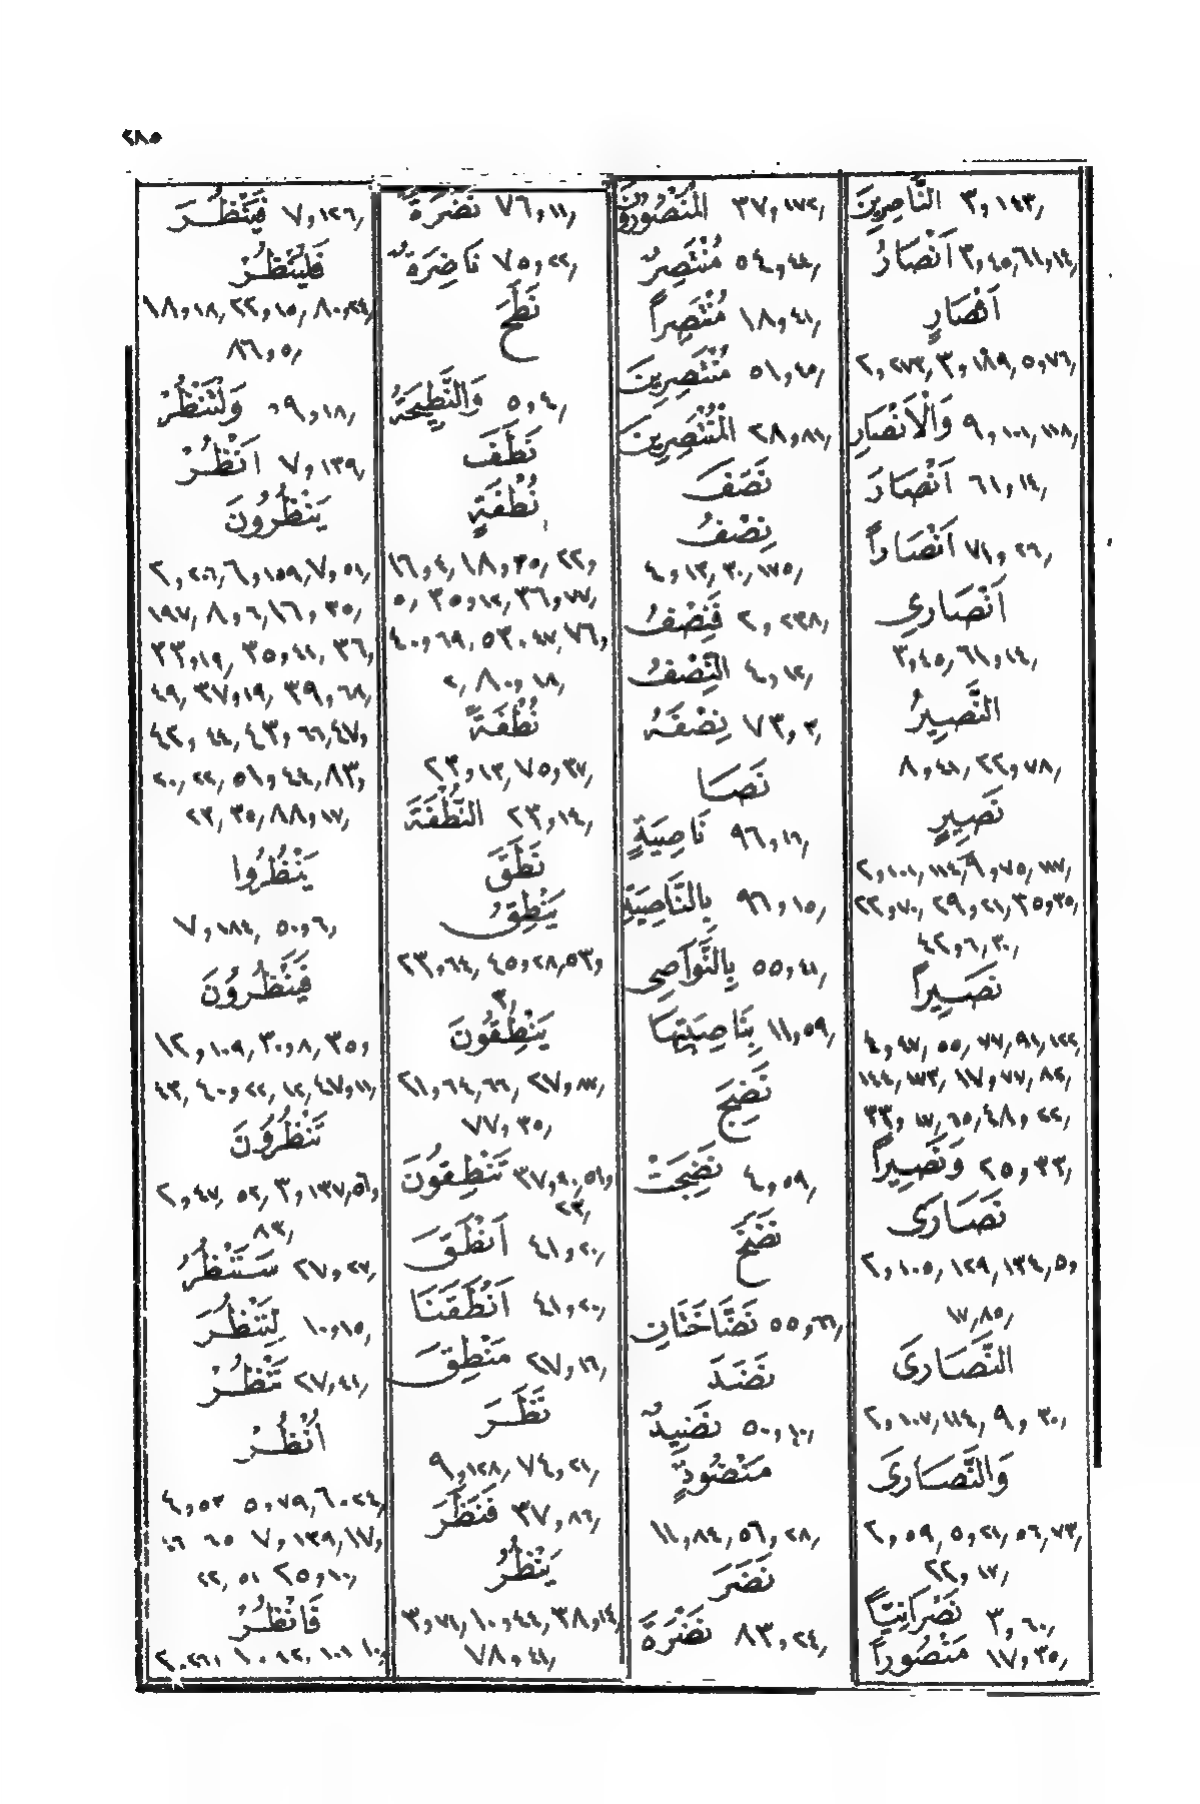 ٢٨٥
النَّاصِرِينَ ٣,١٤٣,
اَنْصَارُ ٣,٤٥,٦١,١٤,
اَنْصَارٍ
٢,٢٧٣,٣,١٨٩,٥,٧٦,
وَالْاَنْصَارِ ٩,١٠١,١١٨,
اَنْصَارَ ٦١,١٤,
اَنْصَاراً ٧١,٢٦,
اَنْصَارِي
٣,٤٥,٦١,١٤,
النَّصِيرُ
٨,٤١,٢٢,٧٨,
نَصِيرٍ
٢,١٠١,١١٤,٩,٧٥,١١٧,
٢٢,٧٠,٢٩,٢١,٣٥,٣٥,
٤٢,٦,٣٠,
نَصِيراً
٤,٤٧,٥٥,٧٧,٩١,١٢٢,
١٤٤,١٧٣,١٧,٧٧,٨٢,
٣٣,١٧,٦٥,٤٨,٢٢,
وَنَصِيراً ٢٥,٣٣,
نَصَارَى
٢,١٠٥,١٢٩,١٣٤,٥,
١٧,٨٥,
النَّصَارَى
٢,١٠٧,١١٤,٩,٣٠,
وَالنَّصَارَى
٢,٥٩,٥,٢١,٥٤,٧٣,
٢٢,١٧,
نَصْرَانِيّاً ٣,٦٠,
مَنْصُوراً ١٧,٣٥,
المَنْصُورُونَ ٣٧,١٧٢,
مُنْتَصِرٌ ٥٤,٤٤,
مُنْتَصِراً ١٨,٤١,
مُنْتَصِرِينَ ٥١,٤٥,
الْمُنْتَصِرِينَ ٢٨,٨١,
نَصَفَ
نِصْفُ
٤,١٣,٣٠,١٧٥,
فَنِصْفُ ٢,٢٣٨,
النِّصْفُ ٤,١٢,
نِصْفَهُ ٧٣,٣,
نَصَا
نَاصِيَةٍ ٩٦,١٦,
بِالنَّاصِيَةِ ٩٦,١٥,
بِالنَّوَاصِى ٥٥,٤١,
بِنَاصِيَتِهَا ١١,٥٩,
نَضِجَ
نَضِجَتْ ٤,٥٩,
نَضَخَ
نَضَّاخَتَانِ ٥٥,٦٦,
نَضَدَ
نَضِيدٌ ٥٠,١٠,
مَنْضُودٍ
١١,٨٤,٥٦,٢٨,
نَضَرَ
نَضْرَةَ ٨٣,٢٤,
نَضْرَةً ٧٦,١١,
نَاضِرَةٌ ٧٥,٢٢,
نَطَحَ
وَالنَّطِيحَةُ ٥,٤,
نَطَفَ
نُطْفَةٍ
١٦,٤,١٨,٣٥,٢٢,
٥,٣٥,١٢,٣٦,٧٧,
٤٠,٦٩,٥٣,٤٧,٧٦,
٢,٨٠,١٨,
نُطْفَةً
٢٣,١٣,٧٥,٣٧,
النُّطْفَةَ ٢٣,١٤,
نَطَقَ
يَنْطِقُ
٢٣,٦٤,٤٥,٢٨,٥٣,
٣,
يَنْطِقُونَ
٢١,٦٤,٦٦,٢٧,٨٧,
٧٧,٣٥,
تَنْطِقُونَ ٣٧,٩٠,٥١,
٢٣,
اَنْطَقَ ٤١,٢٠,
اَنْطَقَنَا ٤١,٢٠,
مَنْطِقَ ٢٧,١٦,
نَظَرَ
٩,١٢٨,٧٤,٢١,
فَنَظَرَ ٣٧,٨٦,
يَنْظُرُ
٣,٧٤,١٠,٤٤,٣٨,١٤,
٧٨,٤١,
فَيَنْظُرَ ٧,١٢٦,
فَلْيَنْظُرْ
١٨,١٨,٢٢,١٥,٨٠,٢٤,
٨٦,٥,
وَلْتَنْظُرْ ٥٩,١٨,
اَنْظُرْ ٧,١٣٩,
يَنْظُرُونَ
٢,٢٠٦,٦,١٥٩,٧,٥١,
١٩٧,٨,٦,١٦,٣٥,
٢٣,١٩,٣٥,٤١,٣٦,
٤٩,٣٧,١٩,٣٩,٦٨,
٤٢,٤٤,٤٣,٦٦,٤٧,
٢٠,٢٢,٥١,٤٤,٨٣,
٢٣,٣٥,٨٨,١٧,
يَنْظُرُوا
٧,١٨٤,٥٠,٦,
فَيَنْظُرُونَ
١٢,١٠٩,٣٠,٨,٣٥,
٤٣,٤٠,٢٢,١٢,٤٧,١١,
تَنْظُرُونَ
٢,٤٧,٥٢,٣,١٣٧,٥٦,
٨٣,
سَنَنْظُرُ ٢٧,٢٧,
لِنَنْظُرَ ١٠,١٥,
نَنْظُرْ ٢٧,٤١,
اُنْظُرْ
٤,٥٣ ٥,٧٩,٦,٢٤,
٤٦ ٦٥ ٧,١٣٩,١٧,
٢٢,٥١ ٢٥,١٠,
فَانْظُرْ